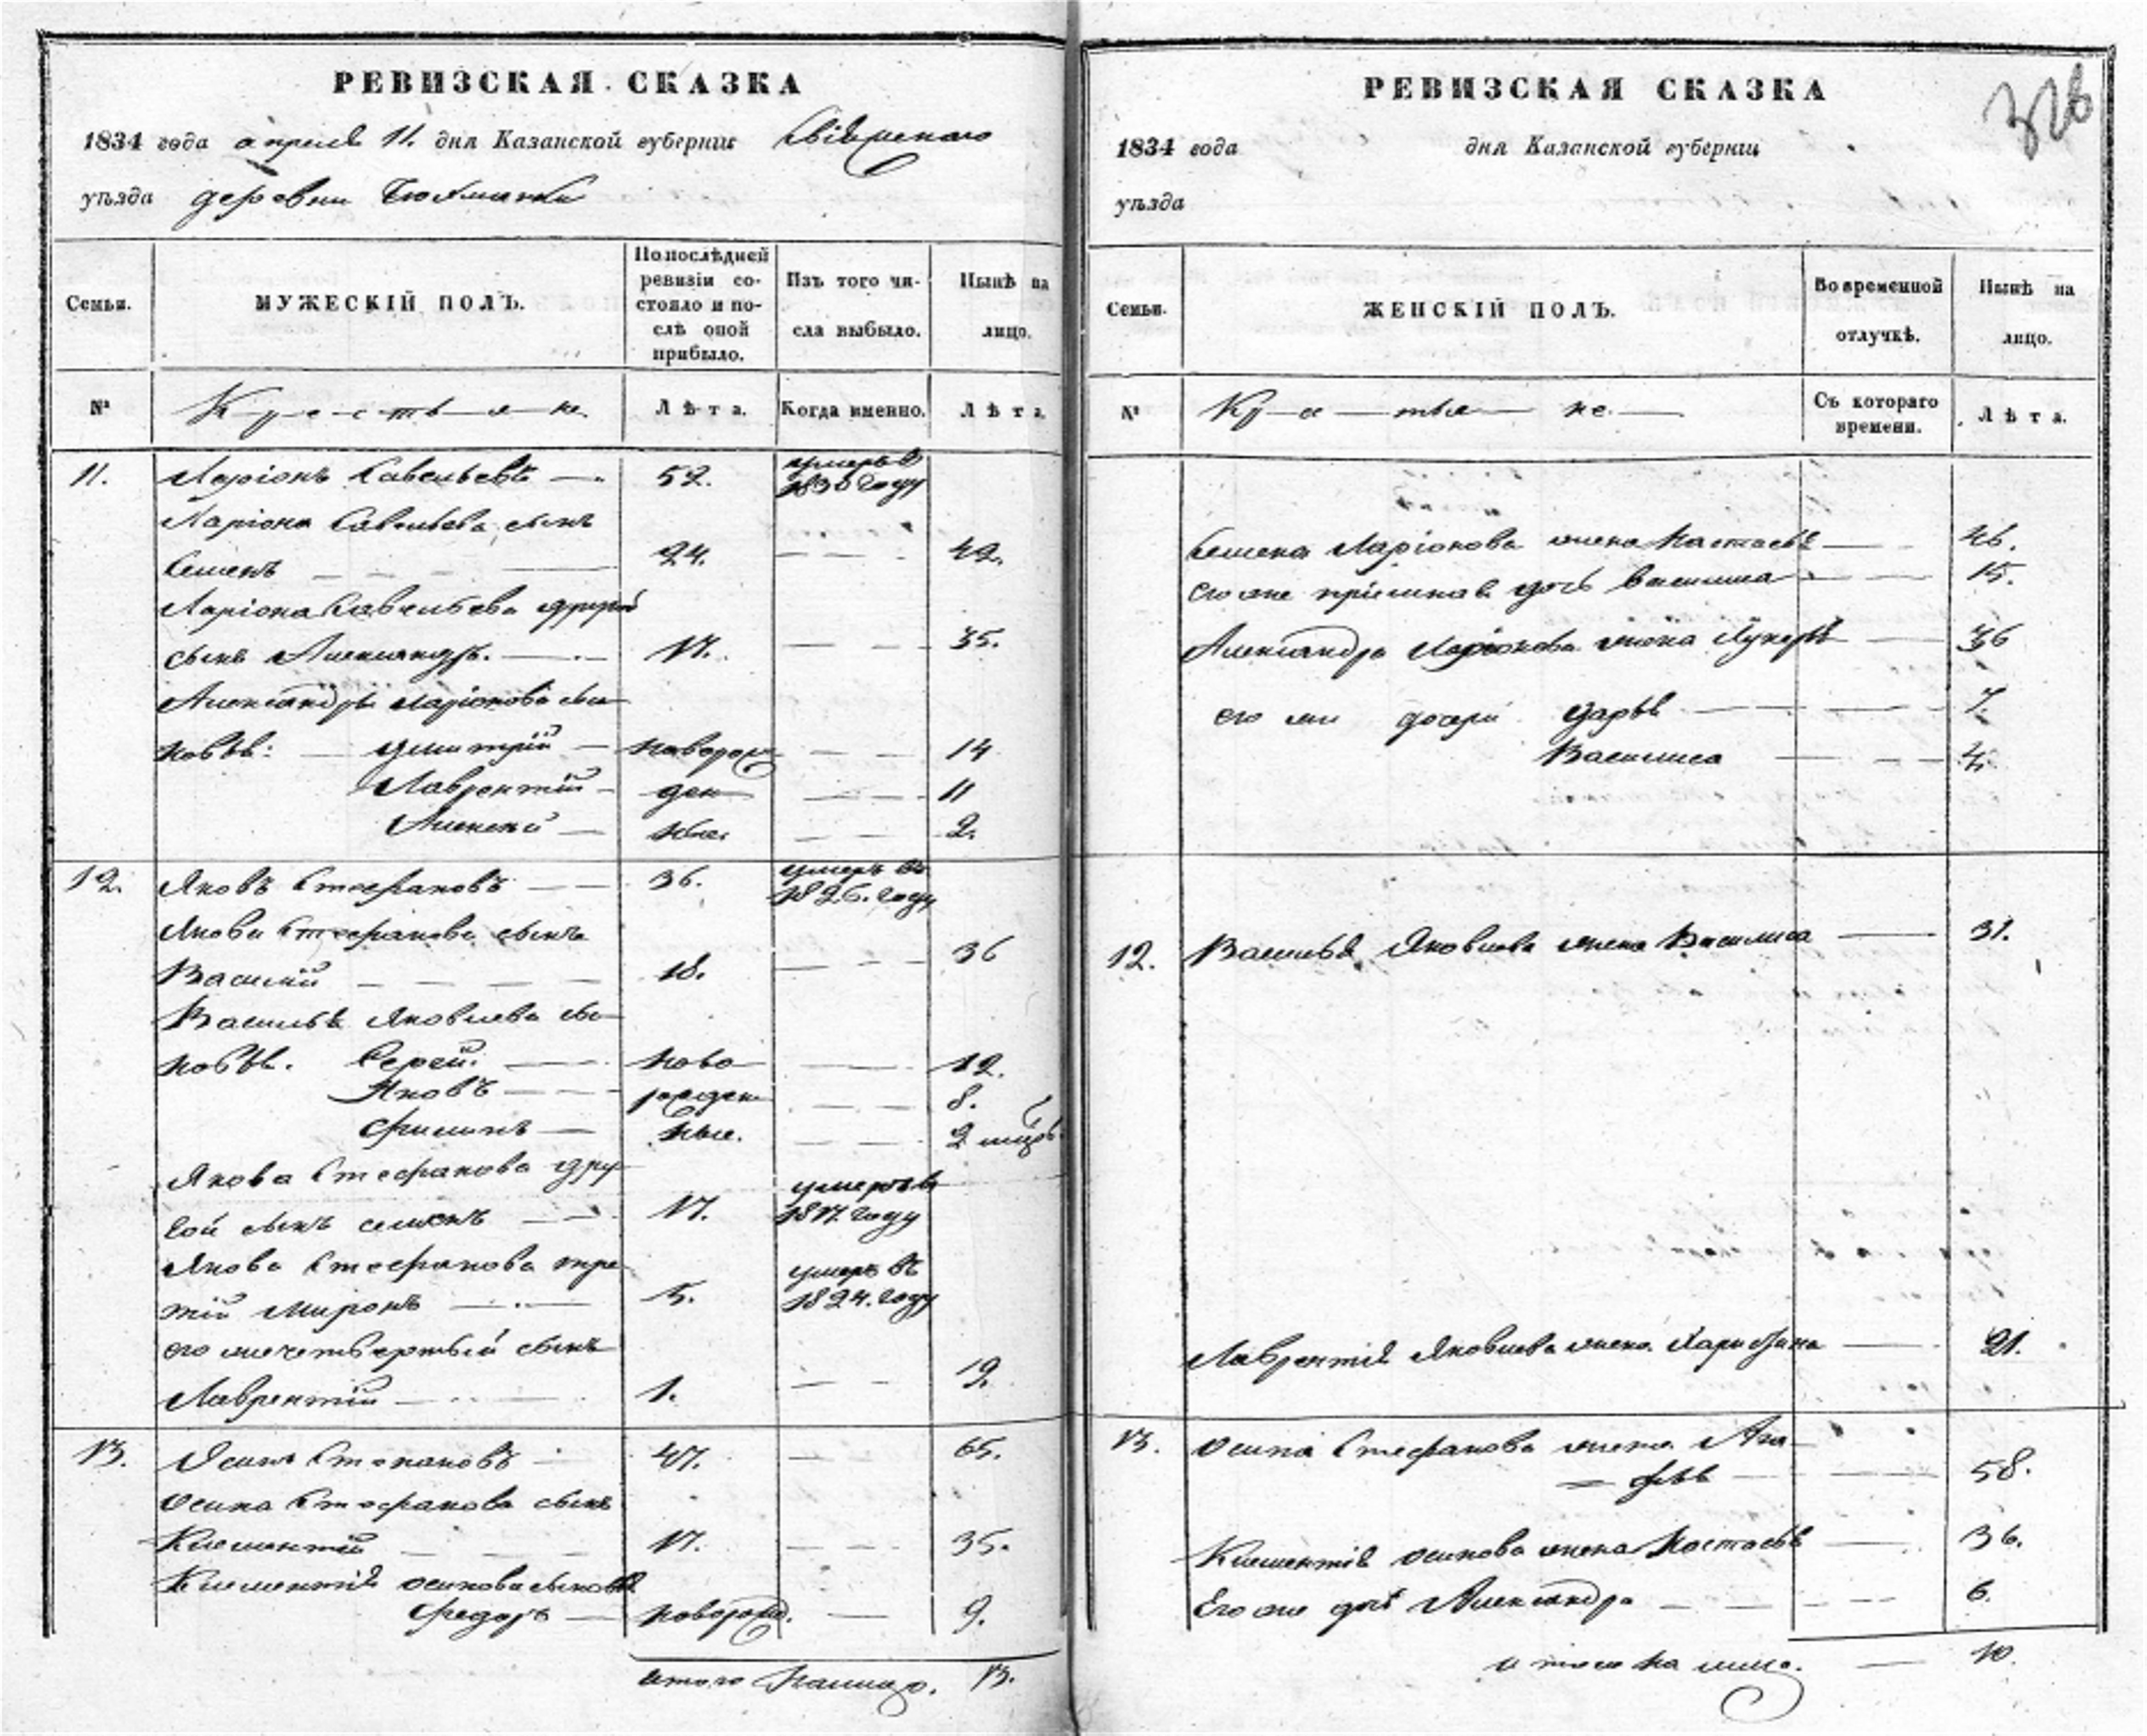 РЕВИЗСКАЯ СКАЗКА
1834 года апреля 11. дня Казанской губернии Свіяжскаго
уѣзда деревни
Семьи.
МУЖЕСКІЙ ПОЛЪ.
По послѣдней
ревизіи со-
стояло и по-
слѣ оной
прибыло.
Изъ того чи-
сла выбыло.
Нынѣ на
лицо.
№
Крестьяне.
Лѣта.
Когда именно.
Лѣта.
11. Ларіонъ Савельевъ 52. умеръ въ
1830 году
Ларіона Савельева сынъ
Семенъ 24. 42.
Ларіона Савельева другой
сынъ Александръ. 17. 35.
Александра Ларіонова сы-
новья: Дмитрій новорож 14
Лаврентій ден 11
Алексей ные. 2.
12. Яковъ Стефановъ 36. умеръ въ
1826. году
Якова Стефанова сынъ
Василій 18. 36
Василья Яковлева сы-
новья. Сергей. ново 12.
Яковъ рожден 8.
Филипъ ные. 2 
Якова Стефанова дру-
гой сынъ семенъ 17. умеръ въ
1817. году
Якова Стефанова тре-
тій Миронъ 5. умеръ въ
1824. году
его же четвертый сынъ
Лаврентій 1. 19.
13. Осипъ Степановъ 47. 65.
Осипа Стефанова сынъ
Климентій 17. 35.
Климентія осипова сыновья
Федоръ новорожд. 9.
итого налицо. 13.
РЕВИЗСКАЯ СКАЗКА
326
1834 года дня Казанской губерніи
уѣзда
Семьи.
ЖЕНСКІЙ ПОЛЪ.
Во временной
отлучкѣ.
Нынѣ на
лицо.
№
Крестьяне.
Съ котораго
времени.
Лѣта.
Семена Ларіонова жена Настасья 46.
его же дочь Василиса 15.
Александра Ларіонова жена Лукерья 36
его же дочери Дарья 7.
Василиса 4.
12. Василья Яковлева жена Василиса 31.
Лаврентія Яковлева жена 21.
13. Осипа Стефанова жена Ага-
= фья 58.
Климентія осипова жена Настасья 36.
Его же дочь Александра 6.
итого на лицо. 10.